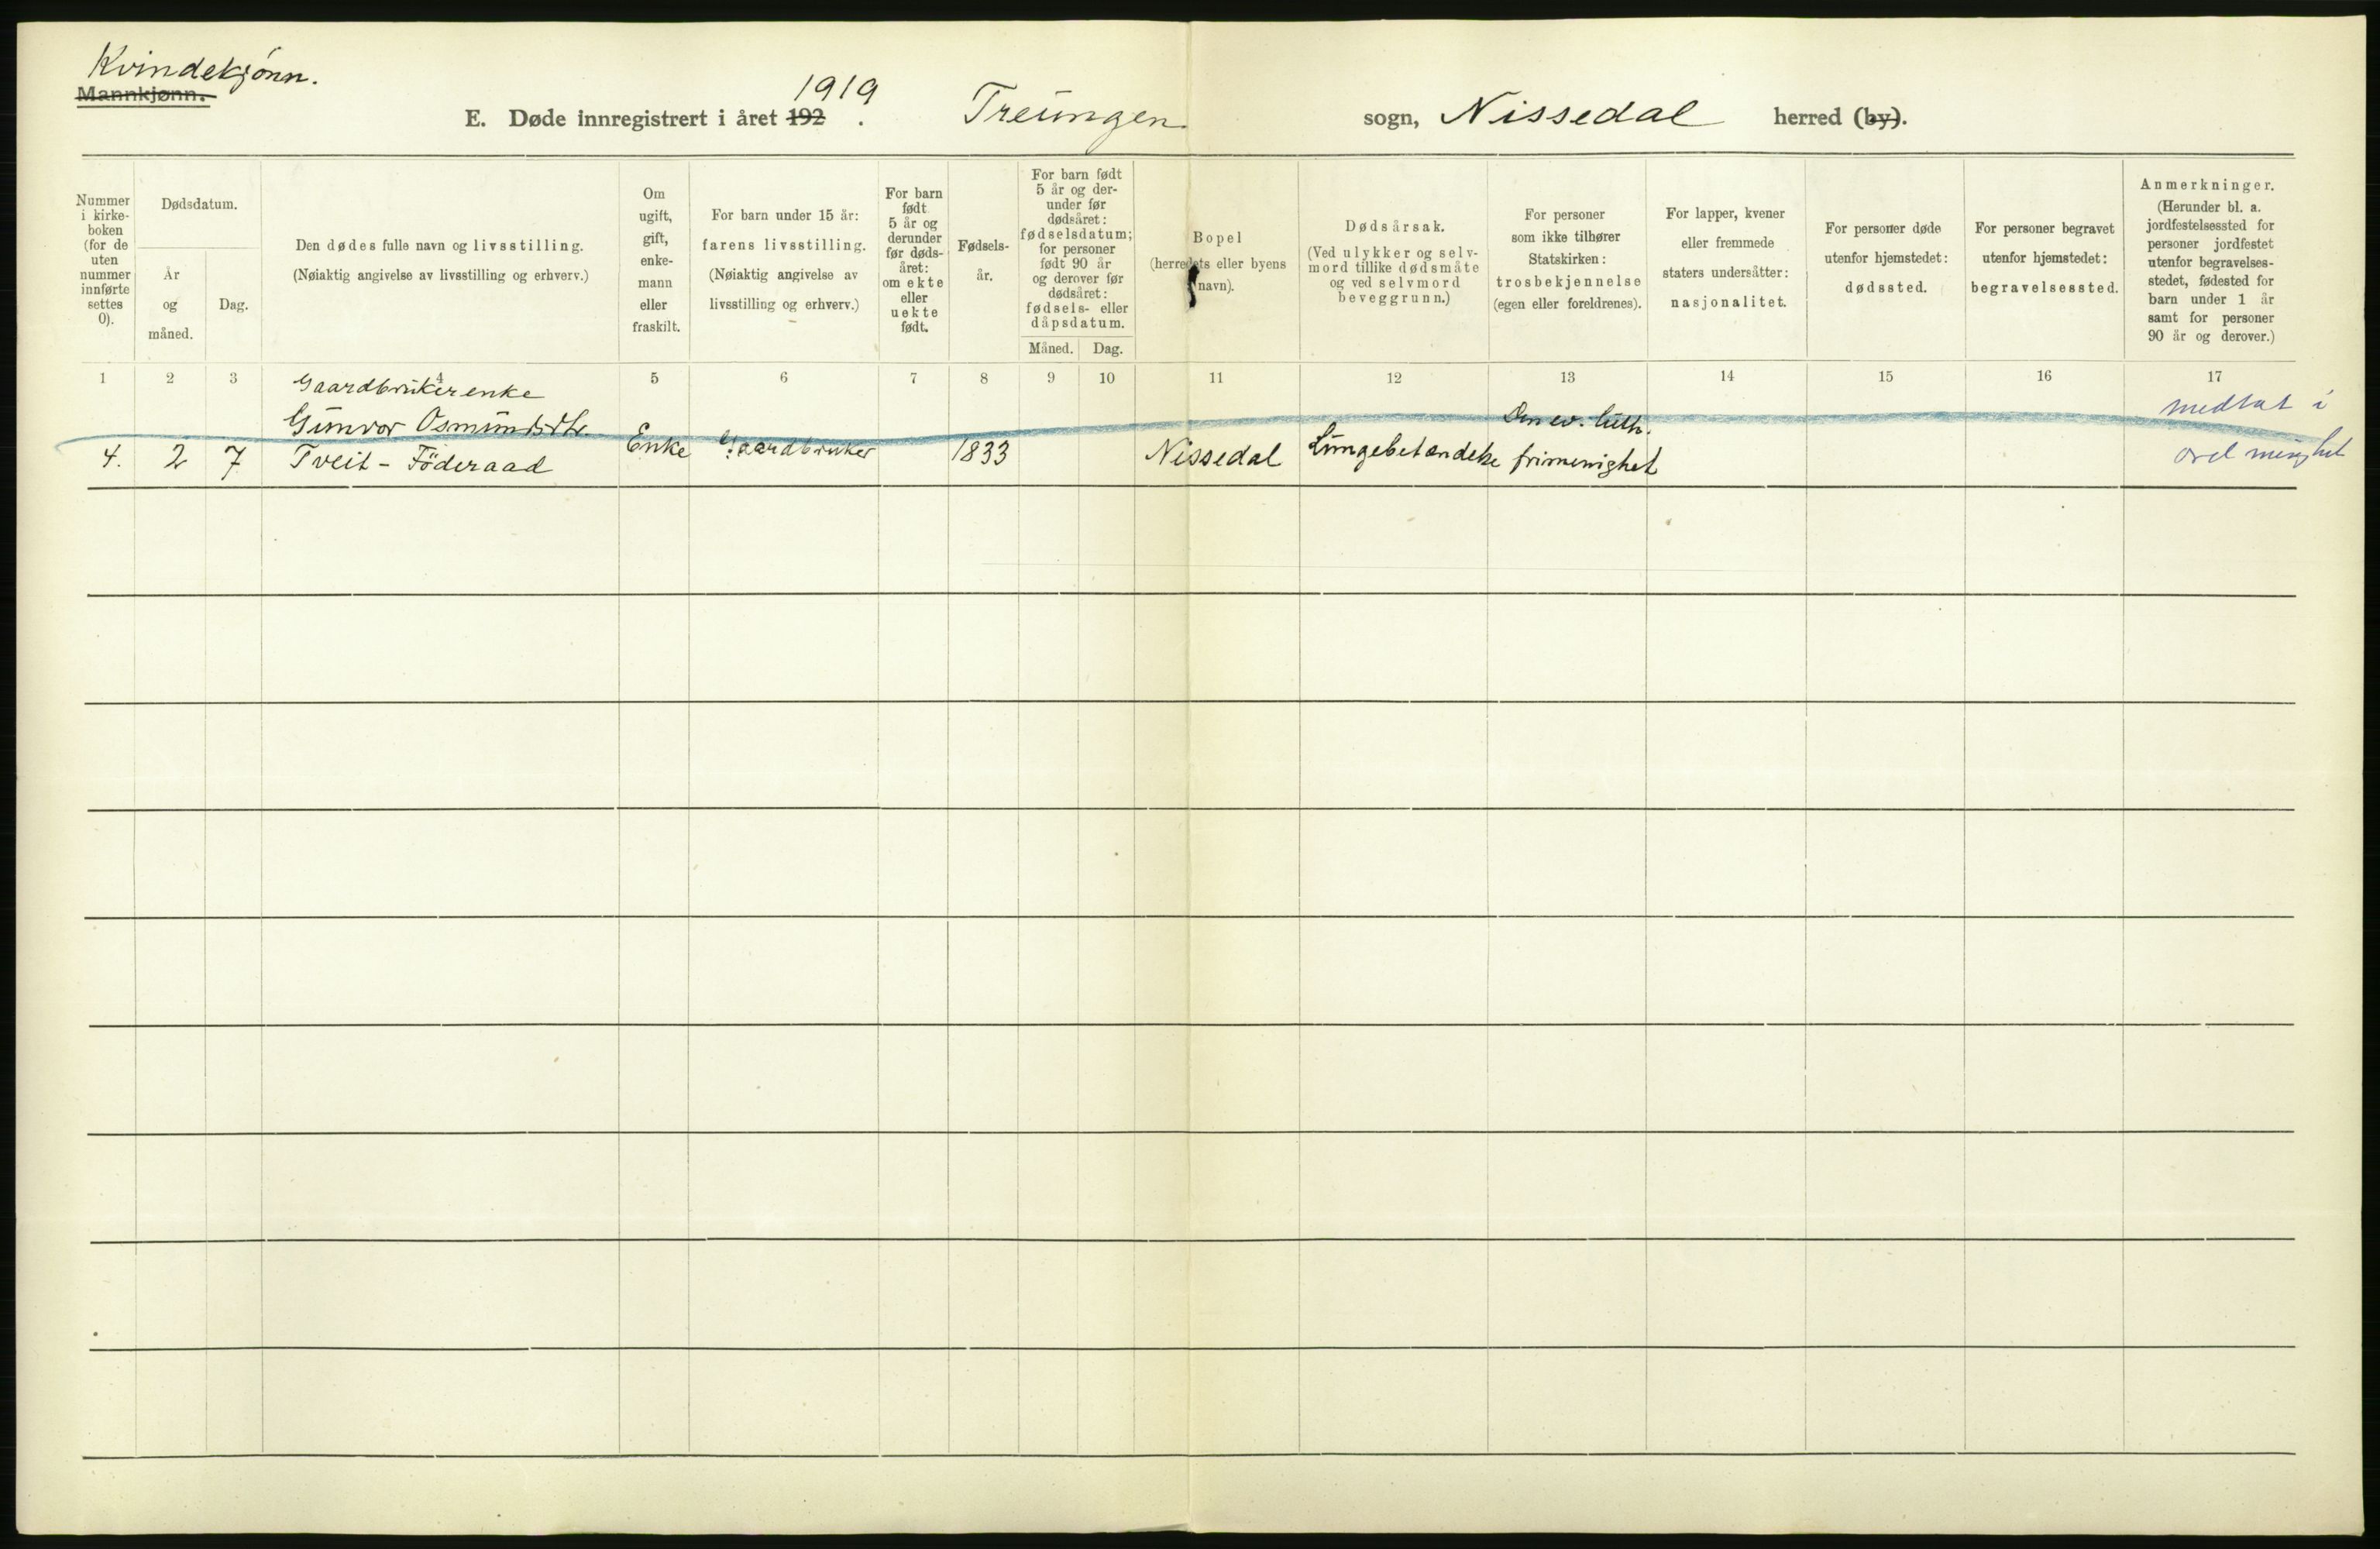 Kvindekjønn.
Mannkjønn.
E. Døde innregistrert i året 192 1919. Treungen sogn, Nissedal herred (by).
Nummer i kirke-
boken
(for de
uten
nummer
innførte
settes
0).
Dødsdatum.
År
og
måned.
Dag.
Den dødes fulle navn og livsstilling.
(Nøiaktig angivelse av livsstilling og erhverv.)
Om
ugift,
gift,
enke-
mann
eller
fraskilt.
For barn under 15 år:
farens livsstilling.
(Nøiaktig angivelse av
livsstilling og erhverv.)
For barn
født
5 år og
derunder
før døds-
året:
om ekte
eller
uekte
født.
Fødsels-
år.
For barn født
5 år og der-
under før
dødsåret:
fødselsdatum;
for personer
født 90 år
og derover før
dødsåret:
fødsels- eller
dåpsdatum.
Måned. Dag.
Bopel
(herredets eller byens
navn).
Dødsårsak.
(Ved ulykker og selv-
mord tillike dødsmåte
og ved selvmord
beveggrunn.)
For personer
som ikke tilhører
Statskirken:
trosbekjennelse
(egen eller foreldrenes).
For lapper, kvener
eller fremmede
staters undersåtter:
nasjonalitet.
For personer døde
utenfor hjemstedet:
dødssted.
For personer begravet
utenfor hjemstedet:
begravelsessted.
Anmerkninger.
(Herunder bl. a.
jordfestelsessted for
personer jordfestet
utenfor begravelses-
stedet, fødested for
barn under 1 år
samt for personer
90 år og derover.)
1 2 3 4 5 6 7 8 9 10 11 12 13 14 15 16 17
Gaardbrukerenke
Gunvor Osmundsdtr. Den ev. luth. medtat i
4. 2 7 Tveit - Föderaad Enke Gaardbruker 1833 Nissedal Lungebetændelse frimenighet